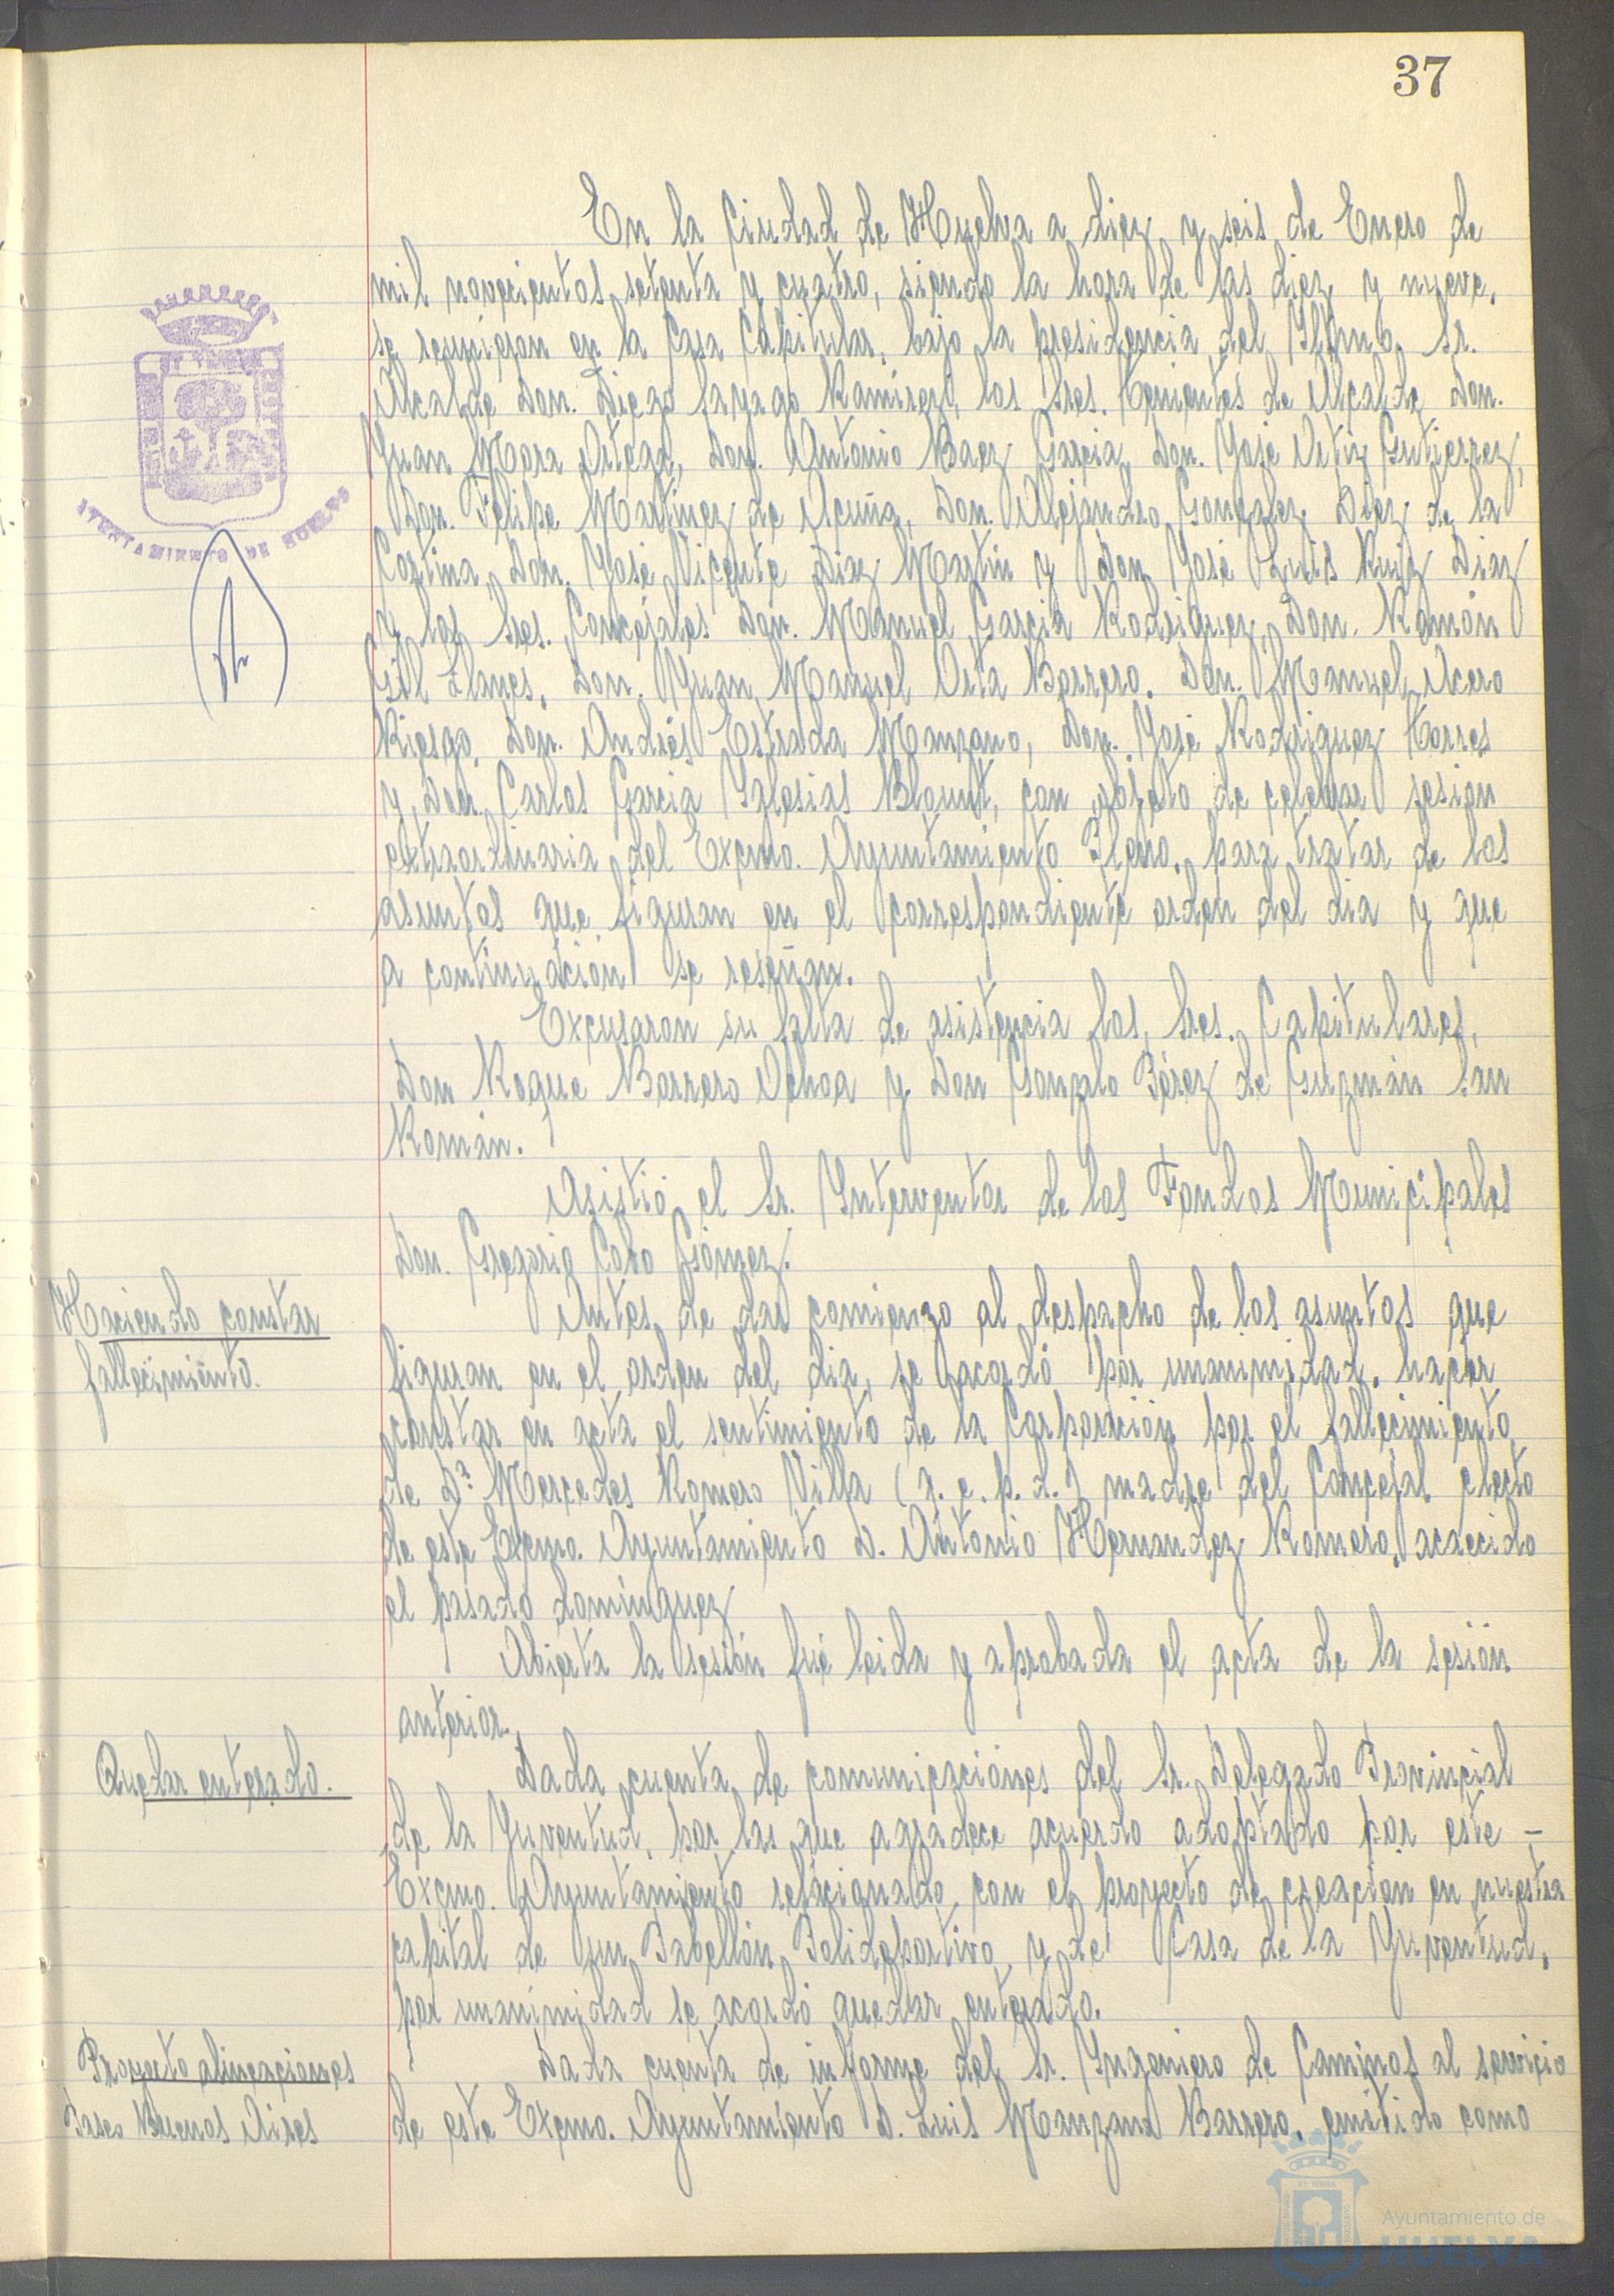 37
En la Ciudad de Huelva a diez y seis de Enero de
mil novecientos setenta y cuatro, siendo la hora de las diez y nueve,
se reunieron en la Casa Capitular, bajo la presidencia del Iltmo. Sr.
Alcalde Don. Diego Sayago Ramirez, los Sres. Tenientes de Alcalde Don.
Juan Mora Ortega, Don. Antonio Baez Garcia, Don. José Ortiz Gutierrez,
Don. Felipe Martinez de Acuña, Don. Alejandro Gonzalez Diez de la
Cortina, Don. José Vicente Diaz Martin y Don José Luis Ruiz Diaz
y los Sres. Concejales Don. Manuel Garcia Rodriguez, Don. Ramón
Gil Llanes, Don. Juan Manuel Orta Borrero, Don. Manuel Acero
Riesgo, Don. Andrés Estrada Manzano, Don. José Rodriguez Torres
y Don. Carlos Garcia Iglesias Blount, con objeto de celebrar sesion
extraordinaria del Excmo. Ayuntamiento Pleno, para tratar de los
asuntos que figuran en el correspondiente orden del dia y que
a continuación se reseñan.
Excusaron su falta de asistencia los, Sres. Capitulares,
Don Roque Barrero Ochoa y Don Gonzalo Pérez de Guzmán San
Román.
Asistió el Sr. Interventor de los Fondos Municipales
Don. Gregorio Cobo Gómez.
Haciendo constar
fallecimiento.
Antes de dar comienzo al despacho de los asuntos que
figuran en el orden del dia, se acordó por unanimidad, hacer
constar en acta el sentimiento de la Corporación por el fallecimiento
de Dª Mercedes Romero Villa (q. e. p. d.) madre del Concejal electo
de este Excmo. Ayuntamiento D. Antonio Hernandez Romero, acaecido
el pasado dominguez
Abierta la sesión fué leida y aprobada el acta de la sesión
anterior.
Quedar enterado.
Dada cuenta de comunicaciones del Sr. Delegado Provincial
de la Juventud, por las que agradece acuerdo adoptado por este -
Excmo. Ayuntamiento relacionado con el proyecto de creación en nuestra
capital de un Pabellón Polideportivo y de Casa de la Juventud,
por unanimidad se acordó quedar enterado.
Proyecto alineaciones
Paseo Buenos Aires
Dada cuenta de informe del Sr. Ingeniero de Caminos al servicio
de este Excmo. Ayuntamiento D. Luis Manzano Barrero, emitido como
AYUNTAMIENTO DE HUELVA
Ayuntamiento de
HUELVA